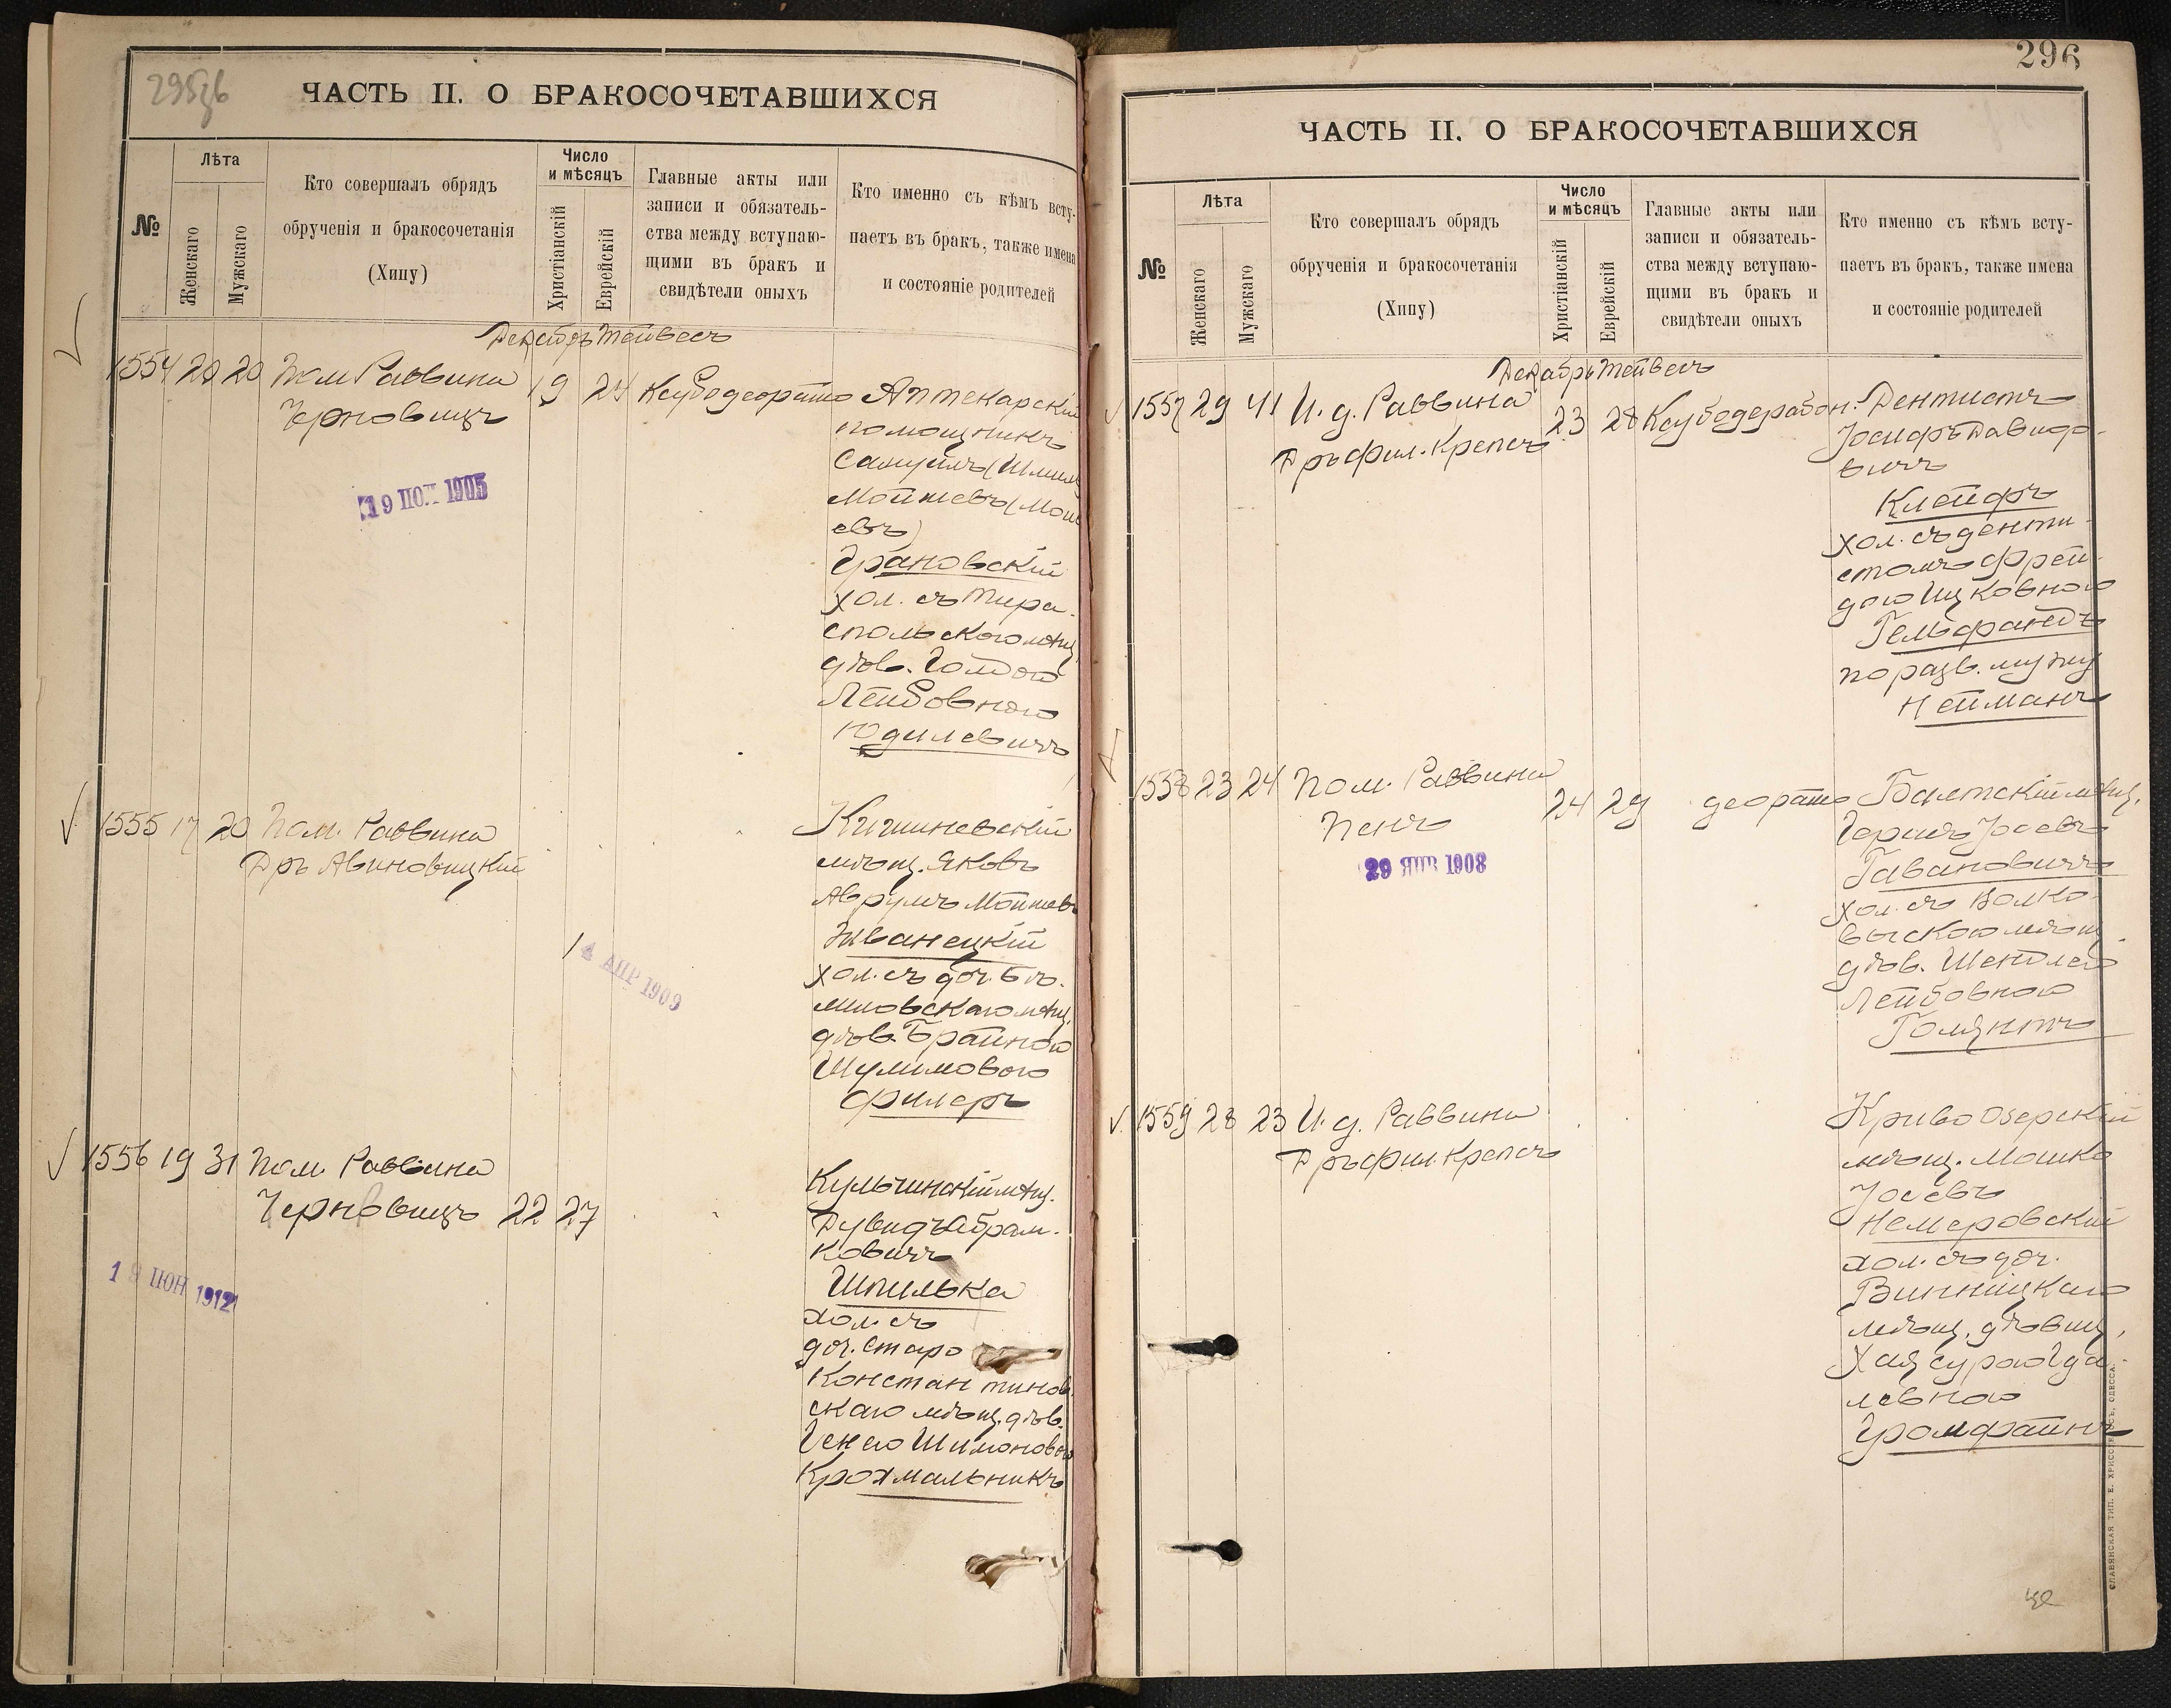 295
ЧАСТЬ II. О БРАКОСОЧЕТАВШИХСЯ
№
Лѣта
Женскаго
Мужскаго
Кто совершалъ обрядъ
обрученія и бракосочетанія
(Хипу)
Число
и мѣсяцъ
Христіанскій
Еврейскій
Главные акты или
записи и обязатель-
ства между вступаю-
щими въ бракъ и
свидѣтели оныхъ
Кто именно съ кѣмъ всту-
паетъ въ бракъ, также имена
и состояніе родителей
Декабрь Тейвесъ
1554 20 20 Пом Раввина
Черновицъ
19 24
Аптекарскій
помощникъ
Самуилъ (Шмиль
Мойшевъ (Мои
евъ)
Грановскій
хол. съ Тира-
спольскою мѣщ
дѣв. Голдою
Лейбовною
Юдилевичъ
19 1905
1555 17 20 Пом. Раввина
Дръ Авиновицкій
Кишиневскій
мѣщ. Яковъ
Аврумъ Мойшевъ
Жванецкій
хол. съ доч. Бѣ-
мѣщ.
дѣв. Брайною
Шулимовою
Филеръ
4 АПР 1909
1556 19 31 Пом Раввина
Черновицъ 22 27
Кульчинскій мѣщ.
Дувидъ Абрам-
ковичъ
Шпилька
хол. съ
доч. Старо
Константинов
скаго мѣщ. дѣв.
Генею Шимоновн
Крохмальникъ
ІЮН 1912
296
ЧАСТЬ II. О БРАКОСОЧЕТАВШИХСЯ
№
Лѣта
Женскаго
Мужскаго
Кто совершалъ обрядъ
обрученія и бракосочетанія
(Хипу)
Число
и мѣсяцъ
Христіанскій
Еврейскій
Главные акты или
записи и обязатель-
ства между вступаю-
щими въ бракъ и
свидѣтели оныхъ
Кто именно съ кѣмъ всту-
паетъ въ бракъ, также имена
и состояніе родителей
Декабрь Тейвесъ
1557 29 41 И. д. Раввина
Дръ фил. Крепсъ
23 28
Дентистъ
Іосифъ Давидо-
вичъ
Клейфъ
хол. съ денти-
стомъ Фрей-
дою Ицковною
Гельфандъ
по разв. мужу
Нейманъ
1558 23 24 Пом. Раввина
Пенъ
24 29
Балтскій мѣщ.
Гершъ Іосевъ
Гавановичъ
хол. съ Волко-
выскою мѣщ.
дѣв. Шендлею
Лейбовною
29 ЯНВ 1908
1559 28 23 И. д. Раввина
Дръ фил. Крепсъ
Криво Озерскій
мѣщ. Мошко
Іосевъ
Немеровскій
хол. съ доч.
Винницкаго
мѣщ. дѣвиц.
Хая Сурою Гда-
левною
СЛАВЯНСКАЯ ТИП. Е. ХРИСОГЕЛОСЪ, ОДЕССА.